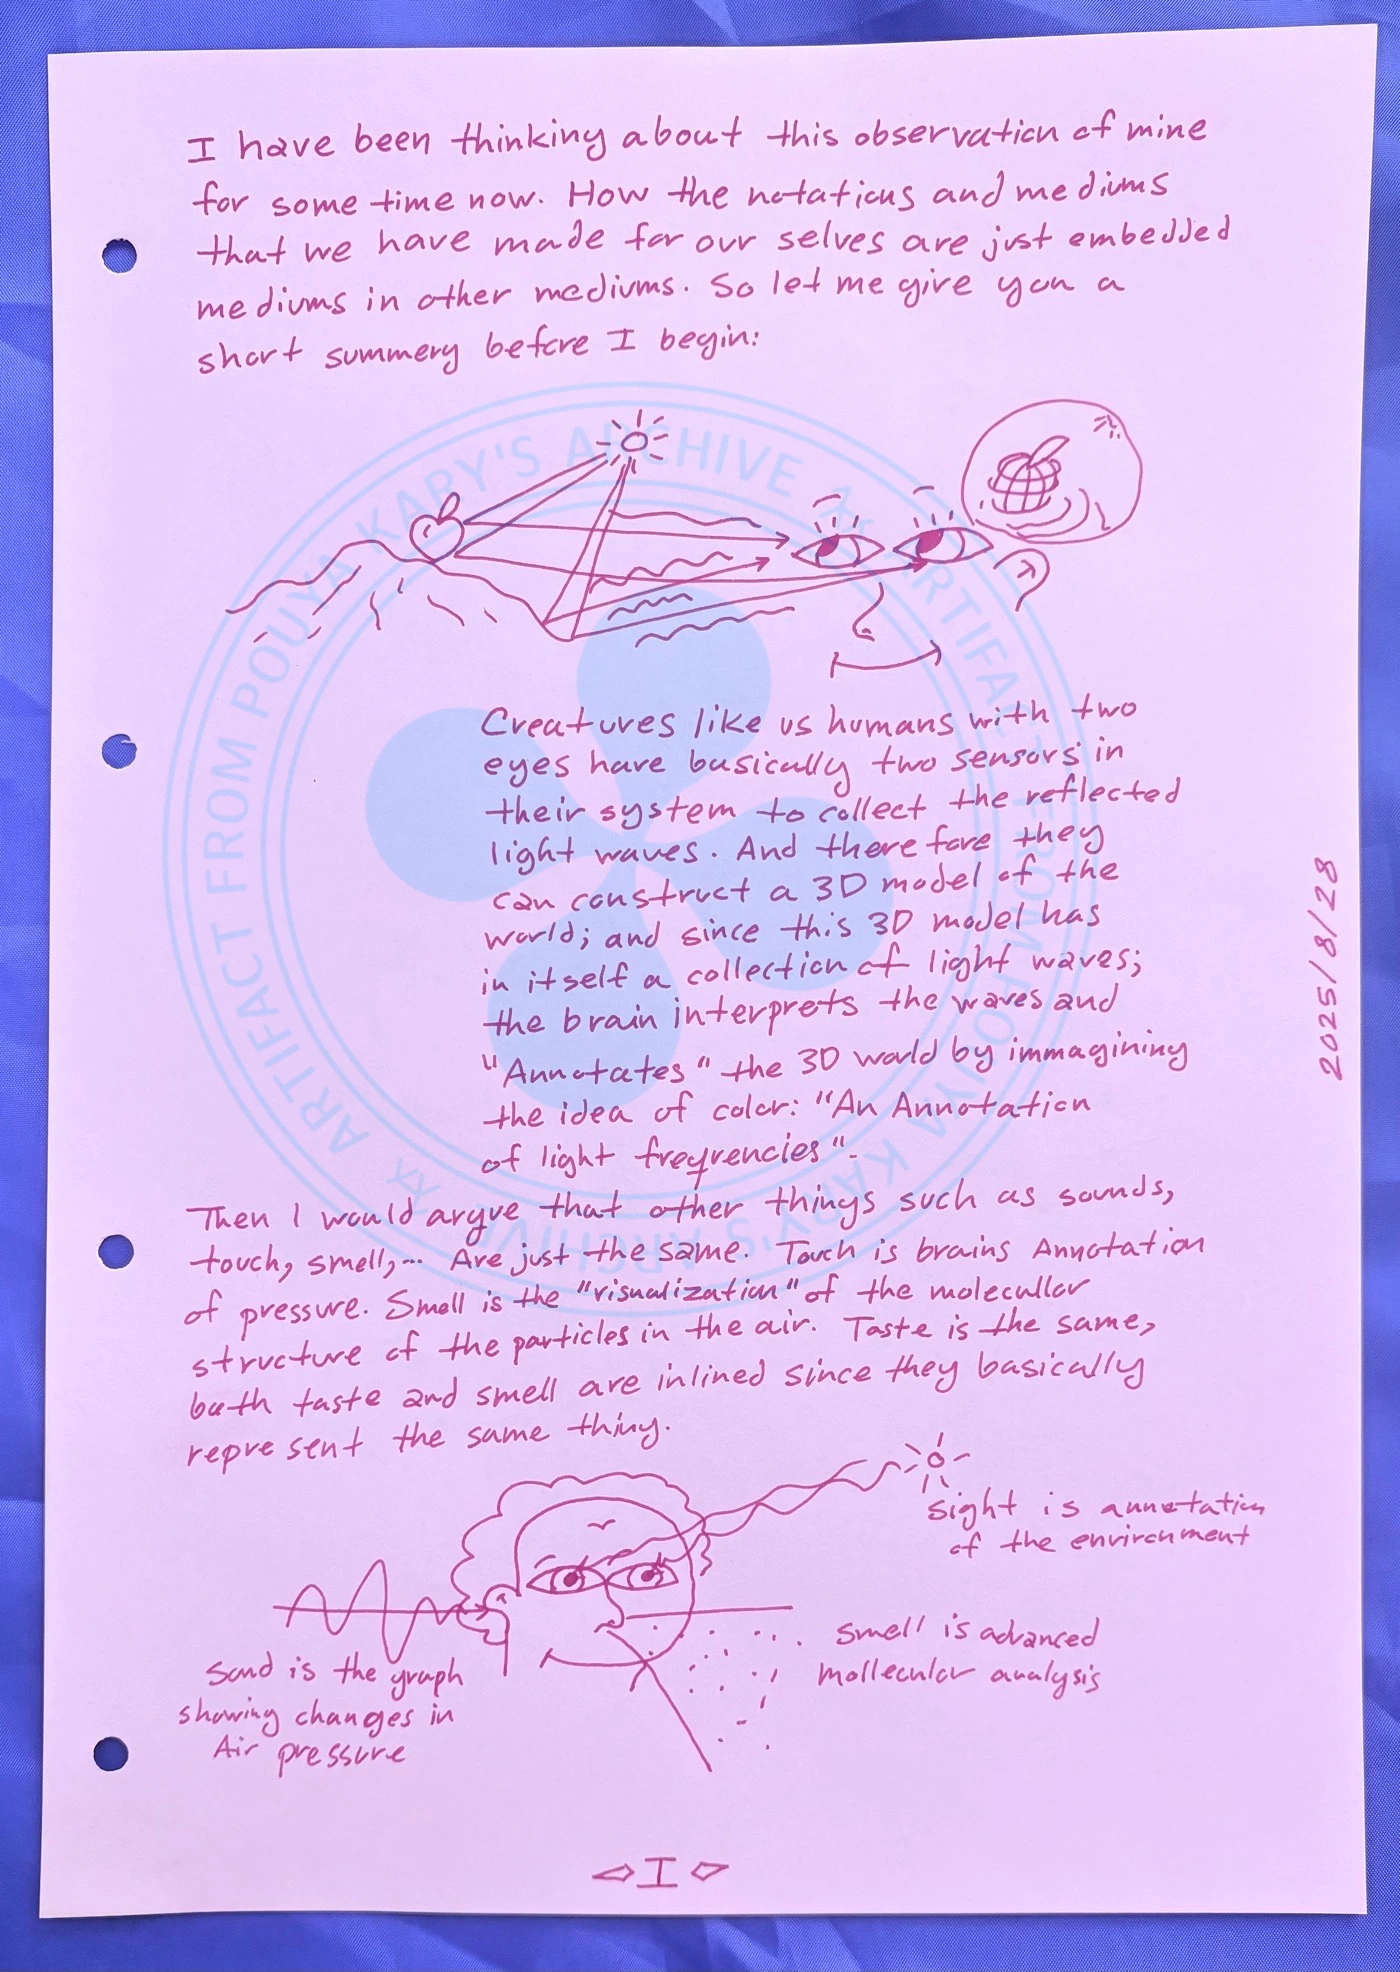 I have been thinking about this observation of mine
for some time now. How the notations and mediums
that we have made for our selves are just embedded
mediums in other mediums. So let me give you a
short summery before I begin:
Creatures like us humans with two
eyes have basically two sensors in
their system to collect the reflected
light waves. And therefore they
can construct a 3D model of the
world; and since this 3D model has
in itself a collection of light waves;
the brain interprets the waves and
"Annotates" the 3D world by immagining
the idea of color: "An Annotation
of light freqrencies".
Then I would argue that other things such as sounds,
touch, smell,... Are just the same. Touch is brains Annotation
of pressure. Smell is the "visualization" of the molecullar
structure of the particles in the air. Taste is the same,
both taste and smell are inlined since they basically
represent the same thing.
Sight is annotation
of the environment
Smell is advanced
mollecular analysis
Sond is the graph
showing changes in
Air pressure
I
2025/8/28
ARTIFACT FROM POUYA KARY'S ARCHIVE
ARTIFACT FROM POUYA KARY'S ARCHIVE